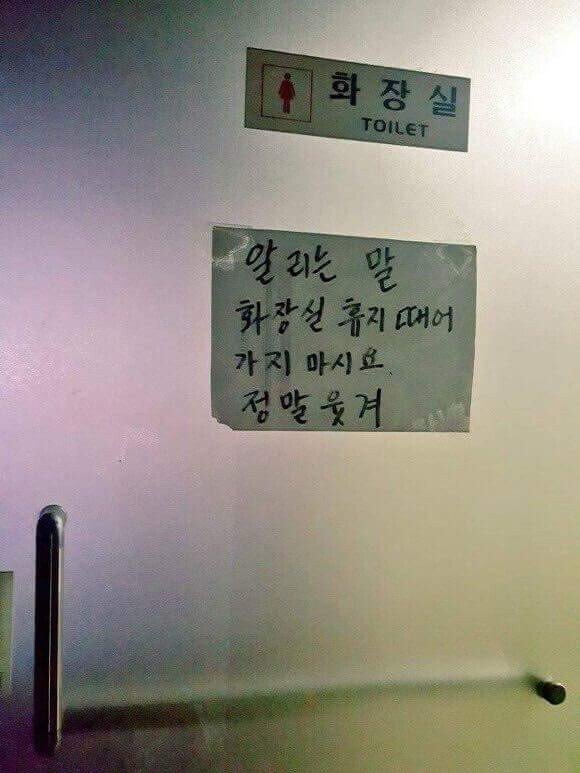 화장실
TOILET
알리는 말
화장실 휴지 떼어
가지 마시요.
정말 웃겨